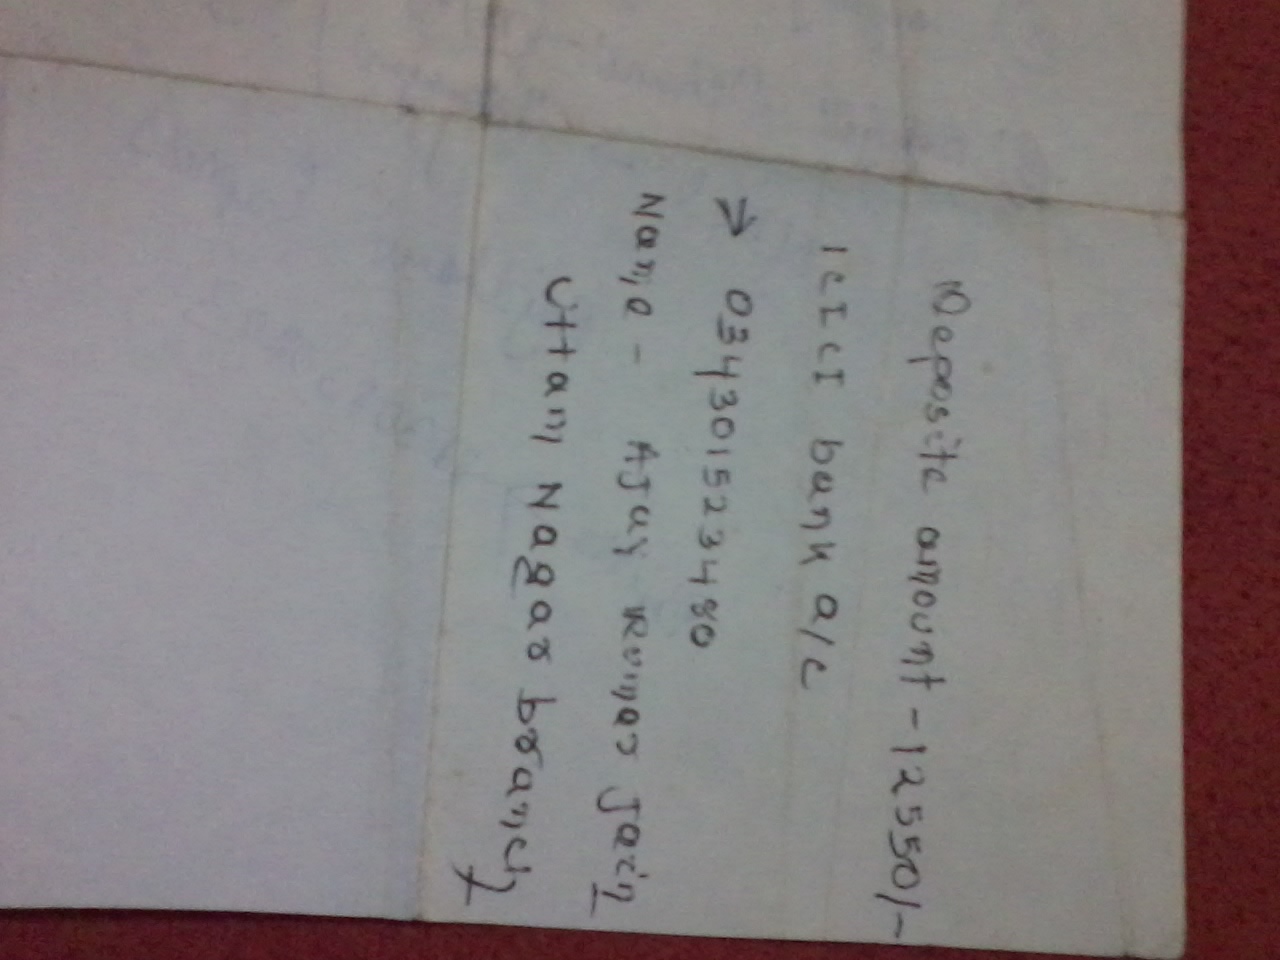 Deposite amount - 12550/-
ICICI bank a/c
→ 034301523480
Name - Ajay Kumar Jain
Uttam Nagar branch